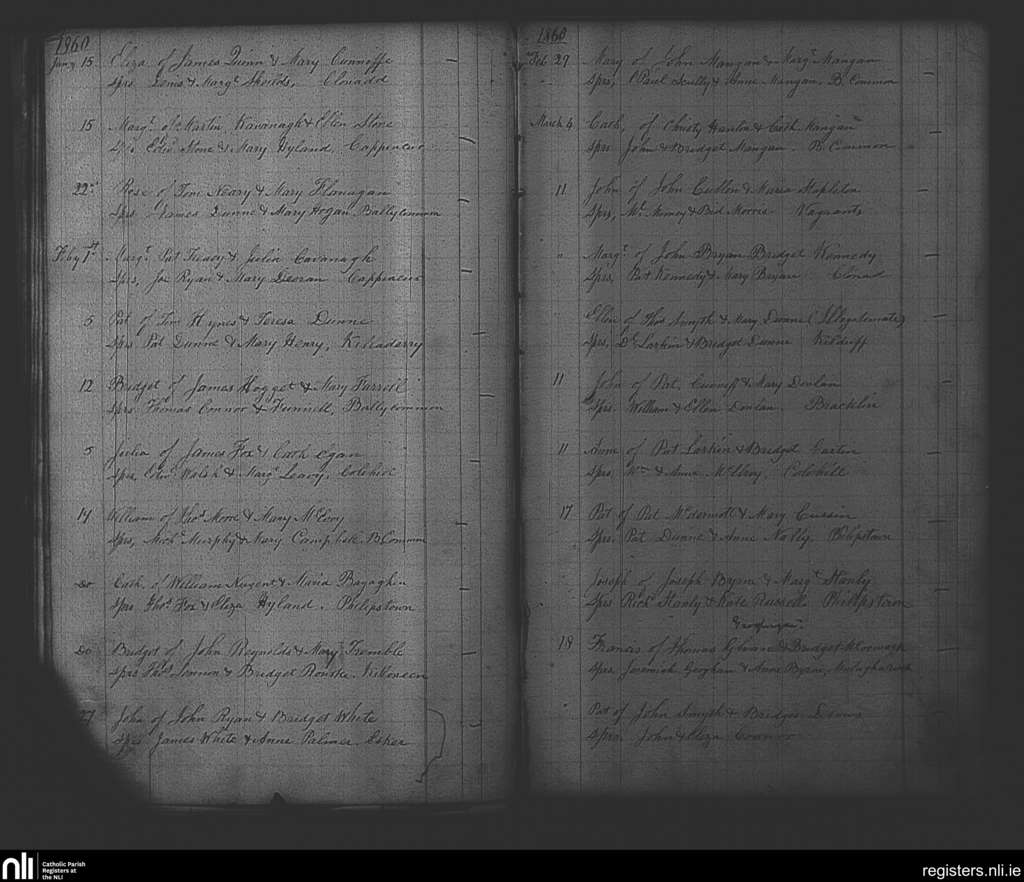 1860
Jany 15 Eliza of James Quinn & Mary Cunniffe
Sprs Louis & Margt Shields, Clonadd
15 Margt of Martin Kavanagh & Ellen Stone
Sprs Edwd Stone & Mary Hyland, Cappencur
22d Rose of Tom Neary & Mary Flanagan
Sprs James Dunne & Mary Hogan, Ballycommon
Feby 1st Margt Pat Treacy & Julia Cavanagh
Sprs, Joe Ryan & Mary Deoran Cappencur
5 Pat of Tom Hynes & Teresa Dunne
Sprs Pat Dunne & Mary Henry, Killaderry
12 Bridget of James Hogget & Mary Farrell
Sprs Thomas Connor & Funnell, Ballycommon
5 Julia of James Fox & Cath Egan
Sprs, Edwd Walsh & Margt Leavy, Colehill
14 William of Thos Moore & Mary McEvoy
Sprs, Michl Murphy & Mary Campbell, B.Common
Do Cath. of William Nugent & Maria
Sprs Thos Fox & Eliza Hyland. Philipstown
Do Bridget of John Reynolds & Mary Tremble
Sprs Thos & Bridget Rourke, Kilboneen
27 John of John Ryan & Bridget White
Sprs James White & Anne Palmer Esker
1860
Feb 27 Mary of John Mangan & Margt Mangan
Sprs, Paul Scully & Anne Mangan, B. Common
March 4 Cath, of Christy Hanlon & Cath Mangan
Sprs John & Bridget Mangan. B. Common
11 John of John Cullen & Maria Stapleton
Sprs, Mt & Bid Morris Vagrants
" Margt of John Bryan Bridget Kennedy
Sprs, Pat Kennedy & Mary Bryan Clonad
Ellen of Thos Smyth & Mary Dunne (Illegitemate)
Sprs, Dl Larkin & Bridget Dunne Kilduff
11 John of Pat, Cunniff & Mary Donlan
Sprs. William & Ellen Donlan. Bracklin
11 Anne of Pat Larkin & Bridget
Sprs Wm & Anne McElroy Colehill
17 Pat of Pat McDermott & Mary Cussin
Sprs. Pat Dunne & Anne Nolly, Philipstown
" Joseph of Joseph Byrne & Margt Hanly
Sprs Richd Hanly & Kate Russell, Phillipstown
Geoghegan
18 Francis of Thomas & Bridget McCormack
Sprs, Jeremiah Geoghan & Anne Byrne,
" Pat of John Smyth & Bridget Dunne
Sprs. John & Eliza Connor
nli
Catholic Parish
Registers at
the NLI
registers.nli.ie